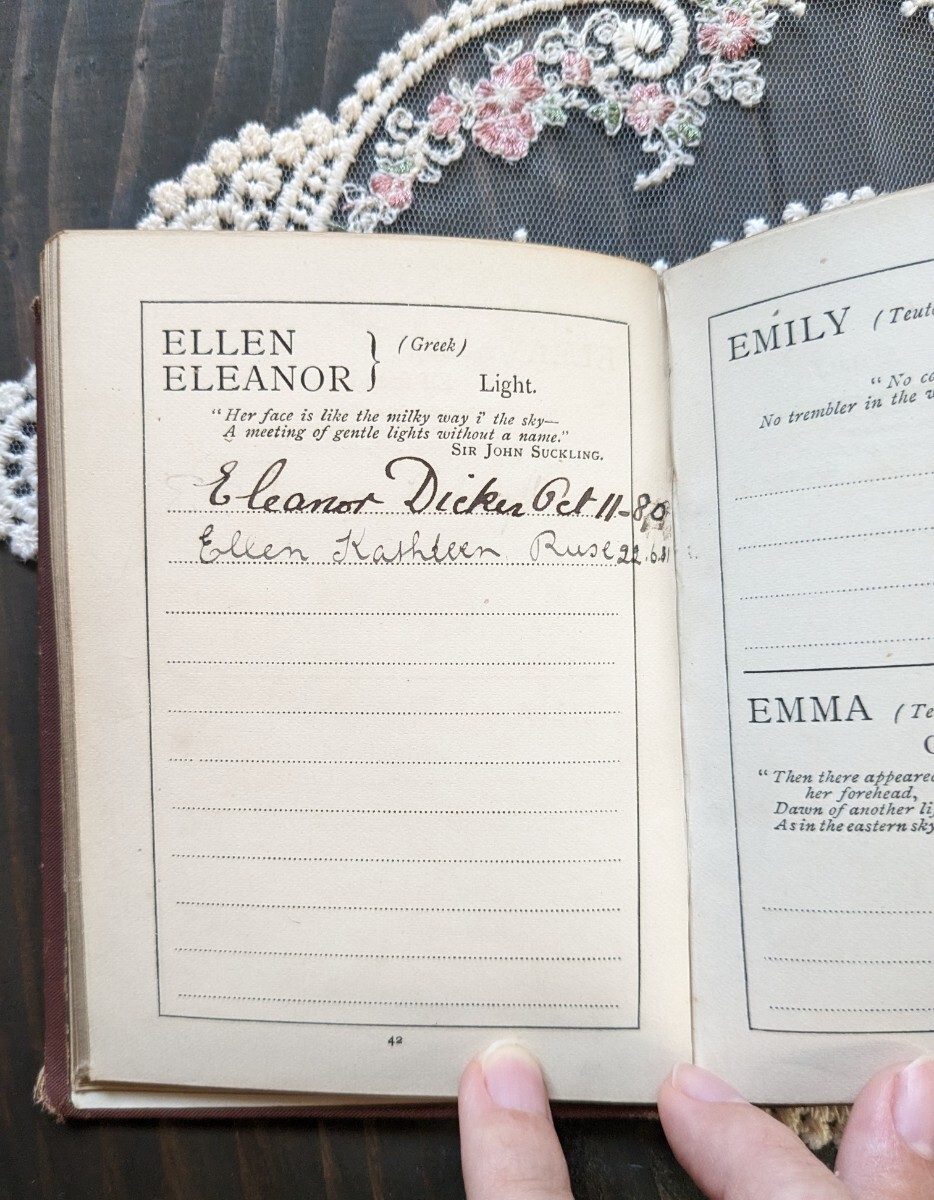 ELLEN
ELEANOR } (Greek)
Light.
"Her face is like the milky way i' the sky—
A meeting of gentle lights without a name."
SIR JOHN SUCKLING.
Eleanor Dicker Oct 11-80
Ellen Kathleen Ruse 22.6.81
42
EMILY (Teuto
"No co
No trembler in the w
EMMA (Te
"Then there appeared
her forehead,
Dawn of another li
As in the eastern sky